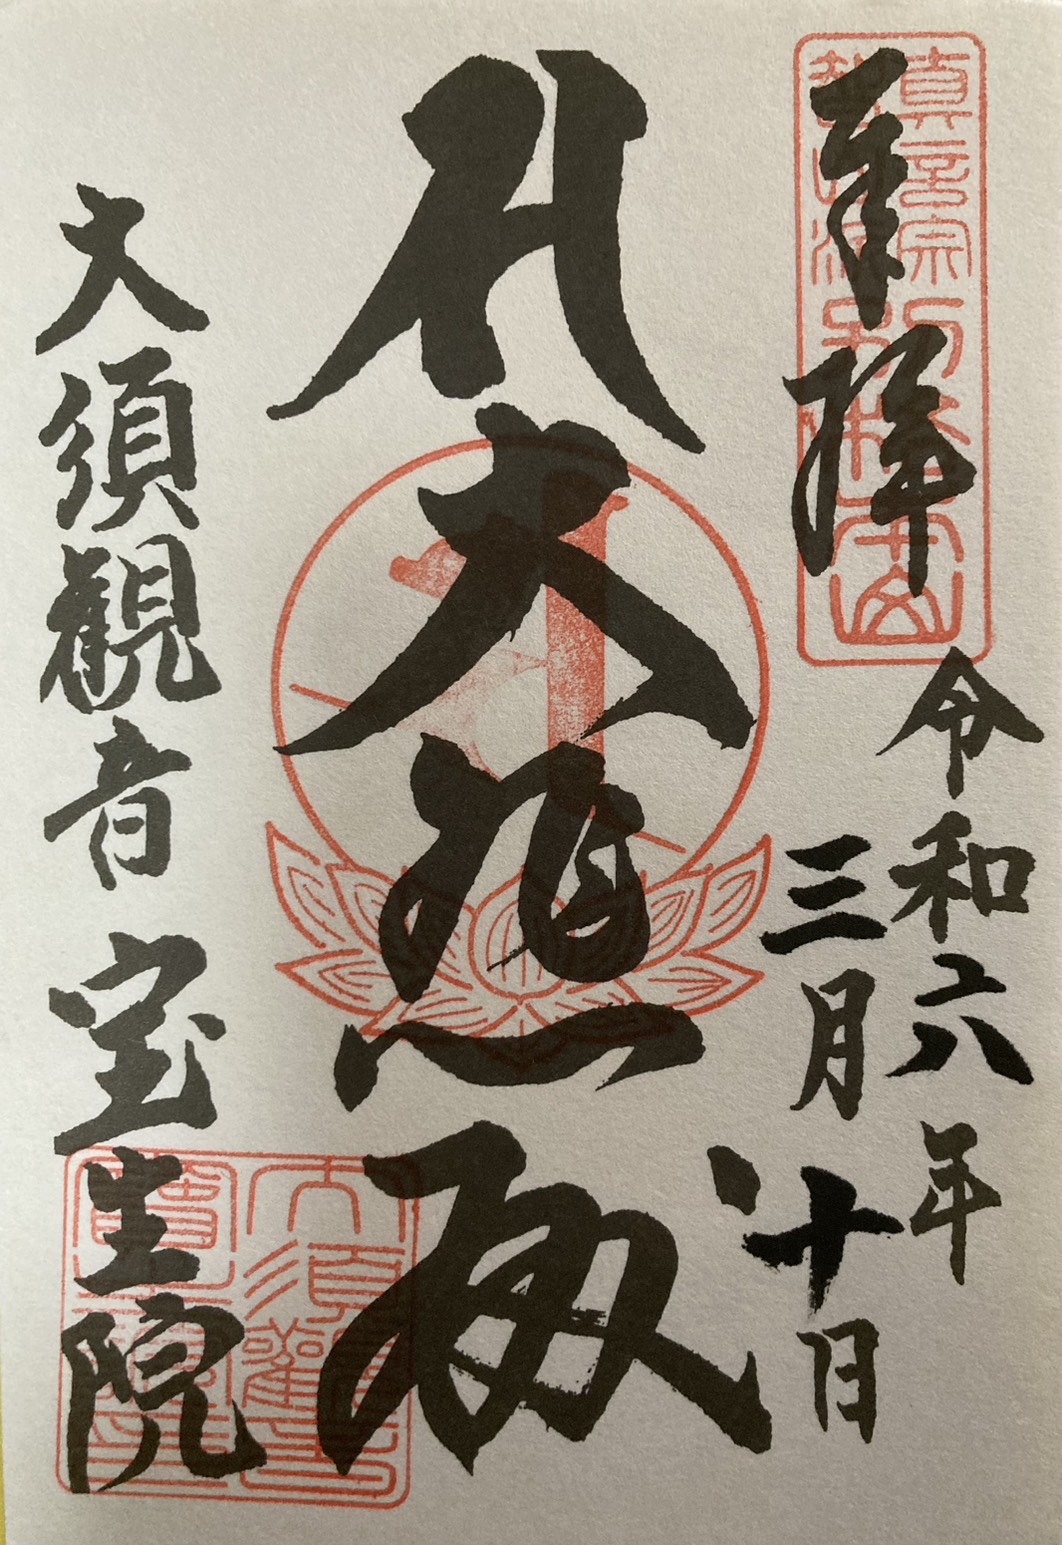 奉拝
令和六年
三月十日
大悲殿
大須観音 宝生院
真言宗
智山派
別格本山